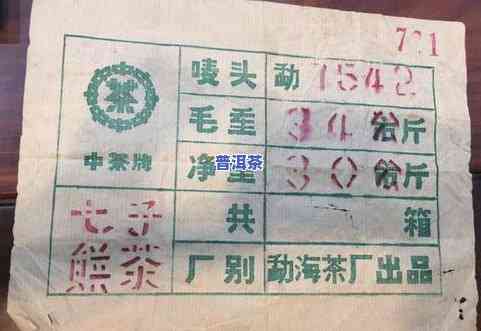 茶
中茶牌
唛头 勐 7542
毛重 公斤
净重 30 公斤
普洱茶
七子
餅茶
共 箱
厂别 勐海茶厂出品